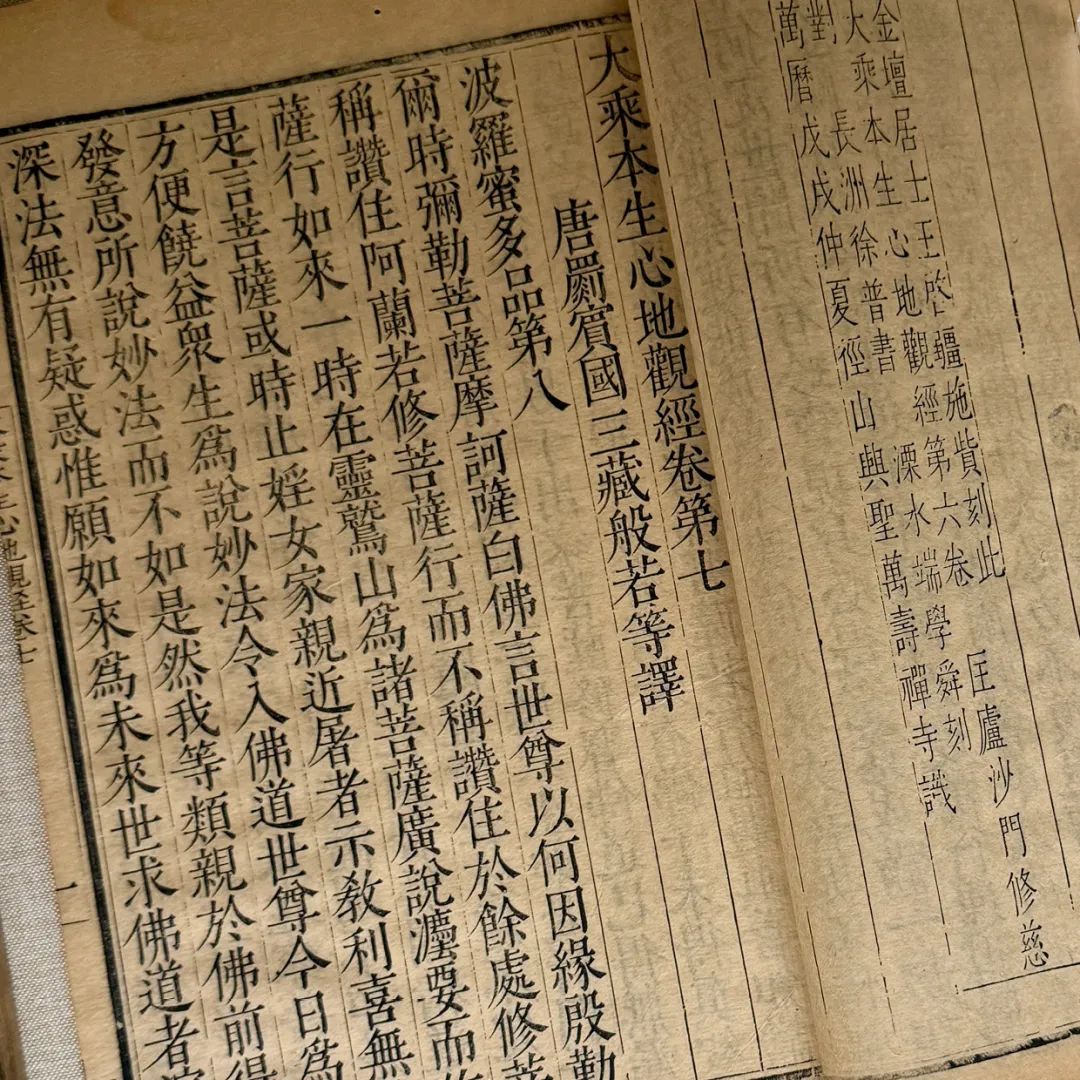 金壇居士王啓疆施貲刻此
大乘本生心地觀經第六卷 匡廬沙門修慈
對 長洲徐普書 溧水端學舜刻
萬曆戊戌仲夏徑山興聖萬壽禪寺識
大乘本生心地觀經卷第七
唐罽賓國三藏般若等譯
波羅蜜多品第八
爾時彌勒菩薩摩訶薩白佛言世尊以何因緣殷勤
稱讚住阿蘭若修菩薩行而不稱讚住於餘處修菩
薩行如來一時在靈鷲山爲諸菩薩廣說灋要而
是言菩薩或時止婬女家親近屠者示教利喜無
方便饒益衆生爲說妙法令入佛道世尊今日爲
發意所說妙法而不如是然我等類親於佛前得
深法無有疑惑惟願如來爲未來世求佛道者
心地觀經卷七
一